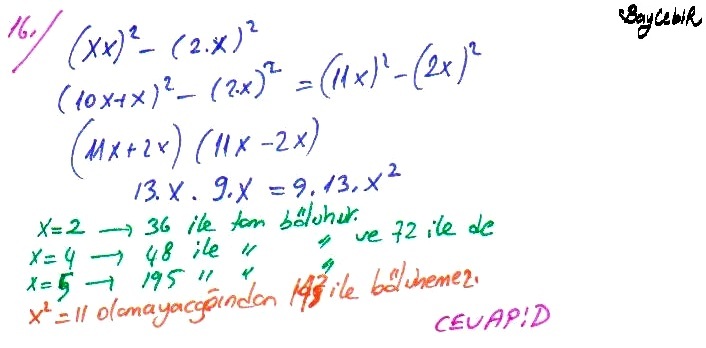 BayCebir
16.) (xx)² - (2.x)²
(10x+x)² - (2x)² = (11x)² - (2x)²
(11x+2x) (11x-2x)
13.x . 9.x = 9.13.x²
x=2 → 36 ile tam bölünür. ve 72 ile de
x=4 → 48 ile " "
x=5 → 195 " " "
x² = 11 olamayacağından 143 ile bölünemez.
CEVAP: D